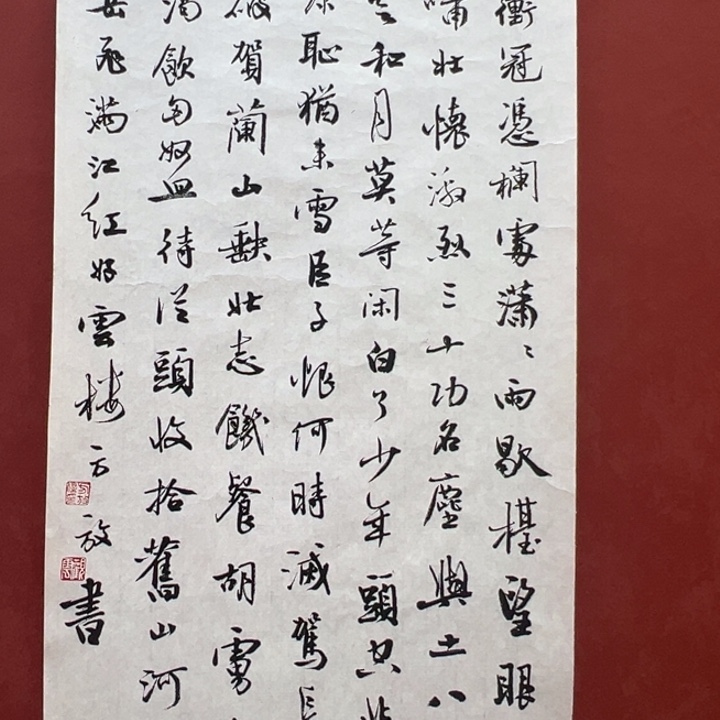 衝冠憑欄處瀟〻雨歇擡望眼
嘯壯懷激烈三十功名塵與土八
云和月莫等閑白了少年頭空悲
恥猶未雪臣子恨何時滅駕長
破賀蘭山缺壯志饑餐胡虜
渴飲匈奴血待從頭收拾舊山河
岳飛滿江紅好雲樓方放書